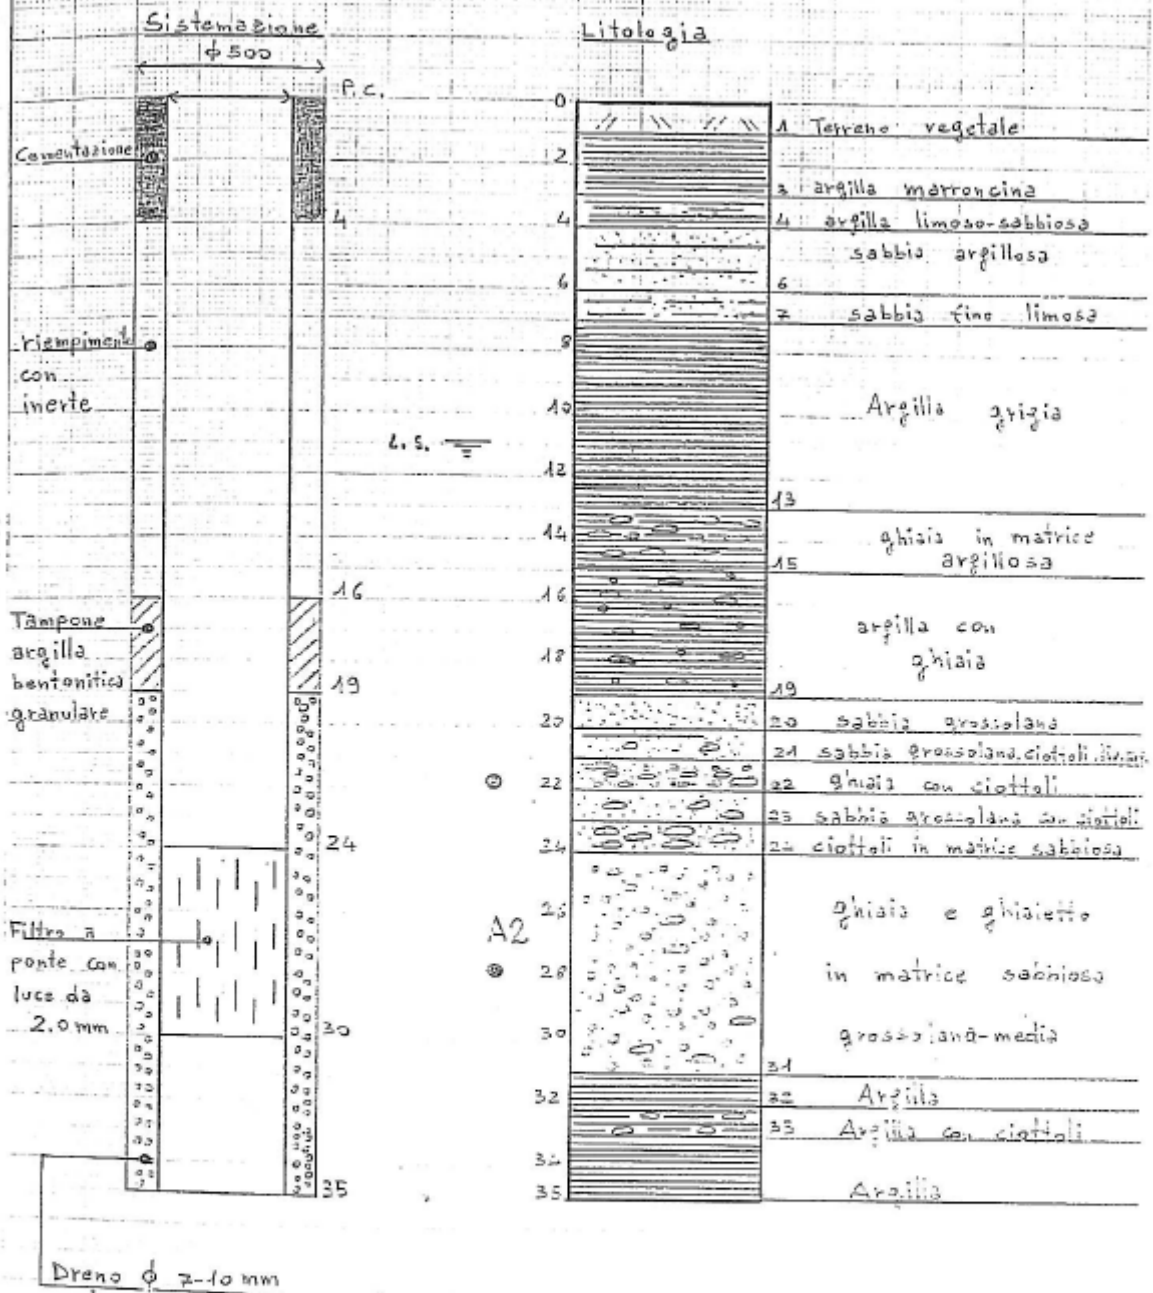 Sistemazione
φ 500
P.C.
Cementazione
4
riempimento
con
inerte
L.S.
16
Tampone
argilla
bentonitica
granulare
19
24
Filtro a
ponte con
luce da
2.0 mm
30
35
Dreno φ 7-10 mm
A2
Litologia
0
2
4
6
8
10
12
14
16
18
20
22
24
26
28
30
32
34
35
1 Terreno vegetale
3 argilla marroncina
4 argilla limoso-sabbiosa
sabbia argillosa
6
7 sabbia fine limosa
Argilla grigia
13
ghiaia in matrice
15 argillosa
argilla con
ghiaia
19
20 sabbia grossolana
21 sabbia grossolana ciottoli
22 ghiaia con ciottoli
23 sabbia grossolana con ciottoli
24 ciottoli in matrice sabbiosa
ghiaia e ghiaietto
in matrice sabbiosa
grossolana-media
31
32 Argilla
33 Argilla con ciottoli
Argilla